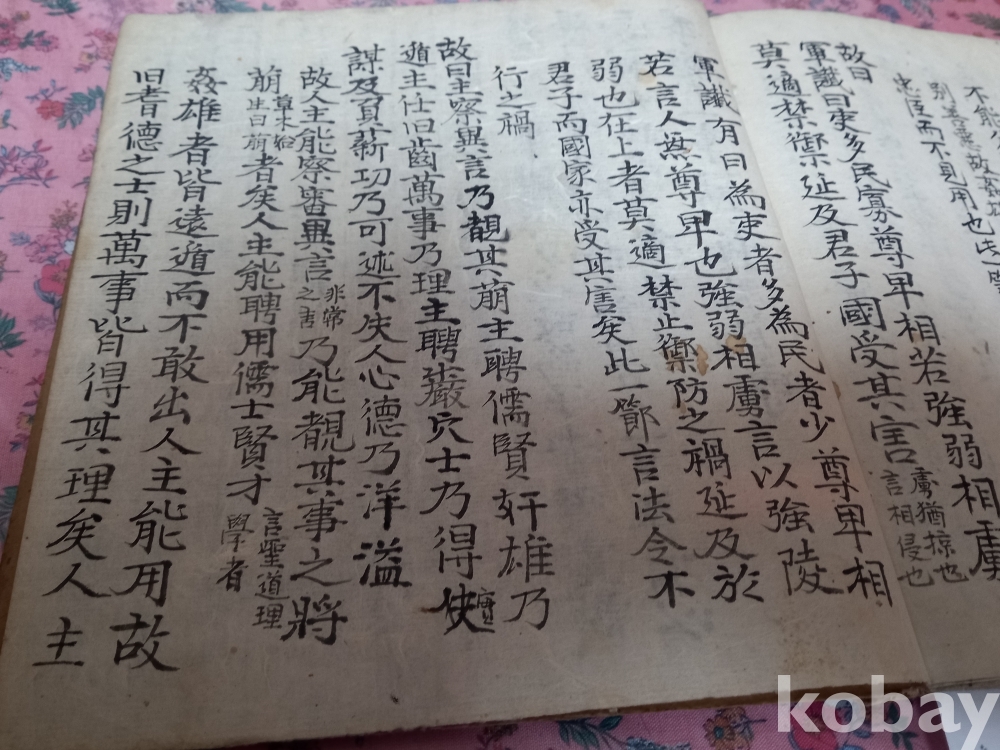 不能
別善惡故
忠臣而不見用也失
故曰
軍讖曰吏多民寡尊卑相若強弱相虜
莫適禁禦延及君子國受其害 虜猶掠也
言相侵也
軍讖有曰為吏者多為民者少尊卑相
若言人無尊卑也強弱相虜言以強陵
弱也在上者莫適禁止禦防之禍延及於
君子而國家亦受其害矣此一節言法令不
行之禍
故曰主察異言乃覩其萠主聘儒賢奸雄乃
遁主仕旧齒萬事乃理主聘巖穴士乃得実
謀及負薪功乃可述不失人心德乃洋溢
故人主能察審異言 非常
之言 乃能覩其事之將
萠 草木始
生曰萠 者矣人主能聘用儒士賢才 言聖道理
學者
姦雄者皆遠遁而不敢出人主能用故
旧耆德之士則萬事皆得其理矣人主
kobay